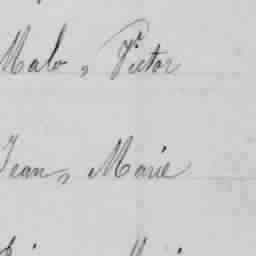 Malo, Victor
Jean, Marie